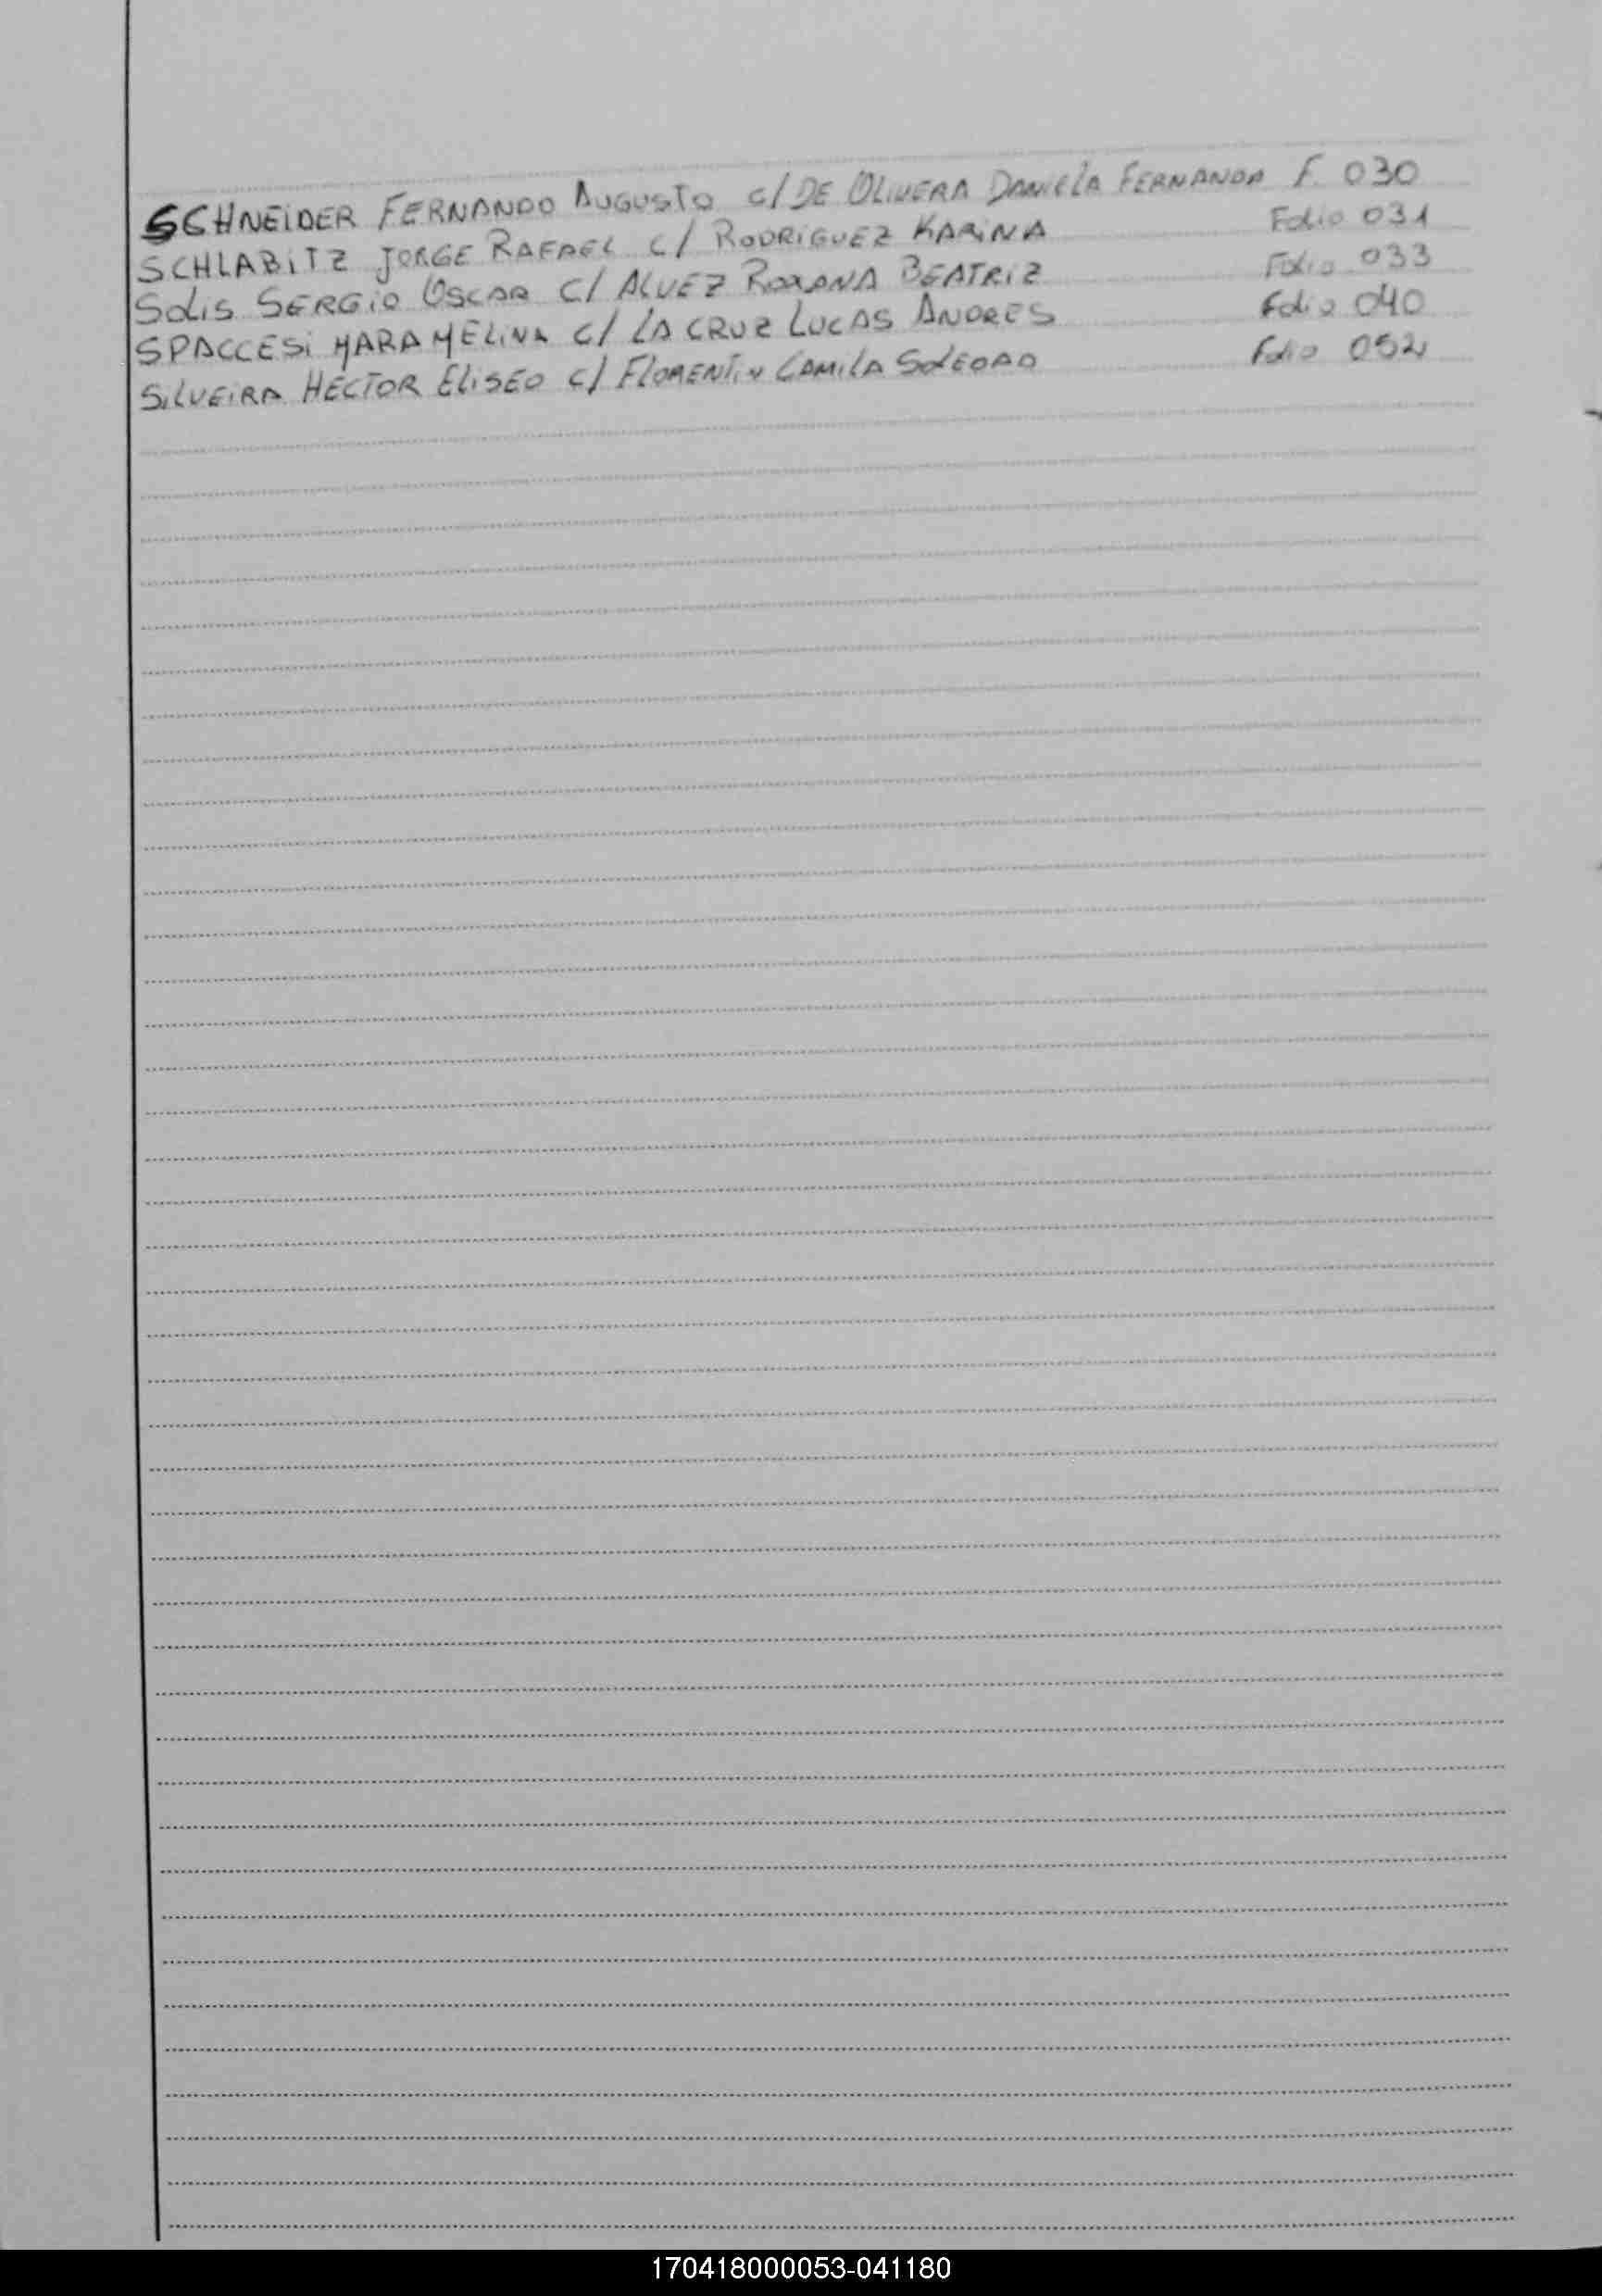 SCHNEIDER FERNANDO AUGUSTO c/ DE OLIVERA DANIELA FERNANDA F. 030
SCHLABITZ JORGE RAFAEL c/ RODRIGUEZ KARINA Folio 031
SOLIS SERGIO OSCAR c/ ALVEZ ROXANA BEATRIZ Folio 033
SPACCESI MARA MELINA c/ LA CRUZ LUCAS ANDRES Folio 040
SILVEIRA HECTOR ELISEO c/ FLORENTIN CAMILA SOLEDAD Folio 052
170418000053-041180